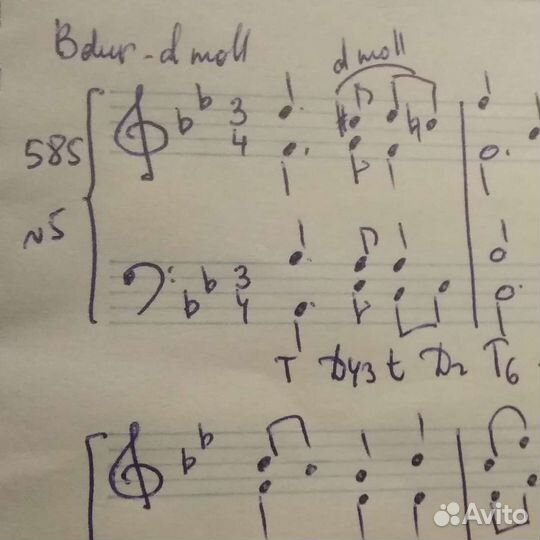 B dur - d moll
d moll
3
4
585
N5
3
4
T D43 t D2 T6
Avito